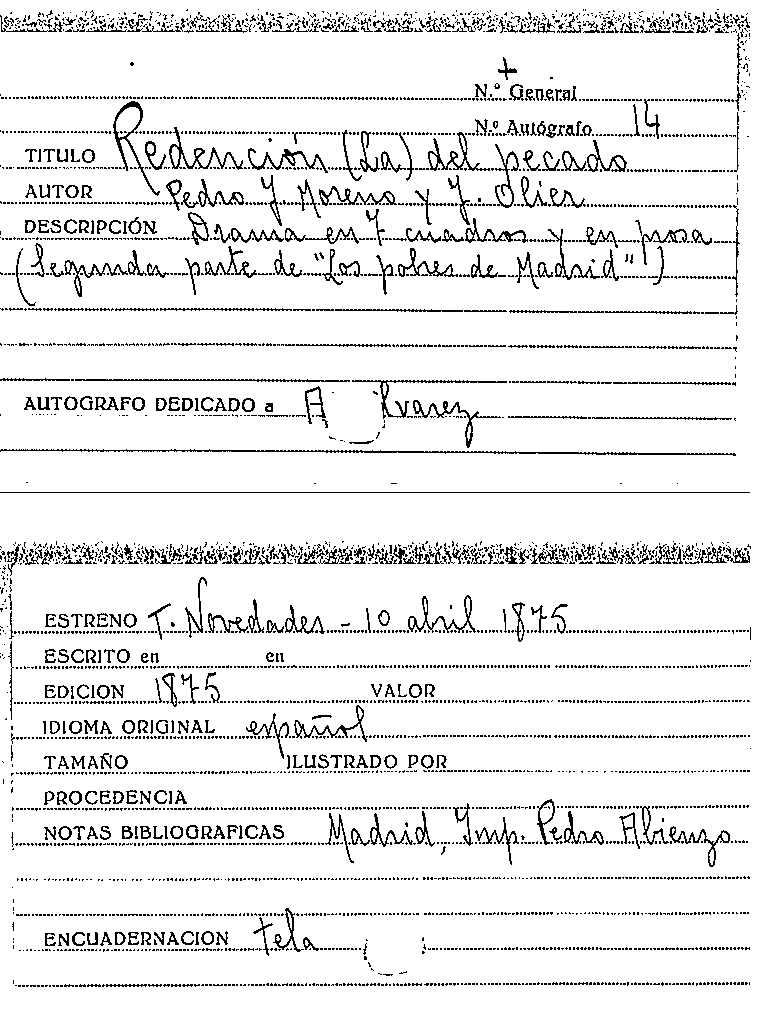 +
N.º General
N.º Autógrafo 14
TITULO Redención (La) del pecado
AUTOR Pedro J. Moreno y J. Olier
DESCRIPCIÓN Drama en 7 cuadros y en prosa
(Segunda parte de "Los pobres de Madrid")
AUTOGRAFO DEDICADO a A lvarez
ESTRENO T. Novedades - 10 abril 1875
ESCRITO en en
EDICION 1875 VALOR
IDIOMA ORIGINAL español
TAMAÑO ILUSTRADO POR
PROCEDENCIA
NOTAS BIBLIOGRAFICAS Madrid, Imp. Pedro Abienzo
ENCUADERNACION tela